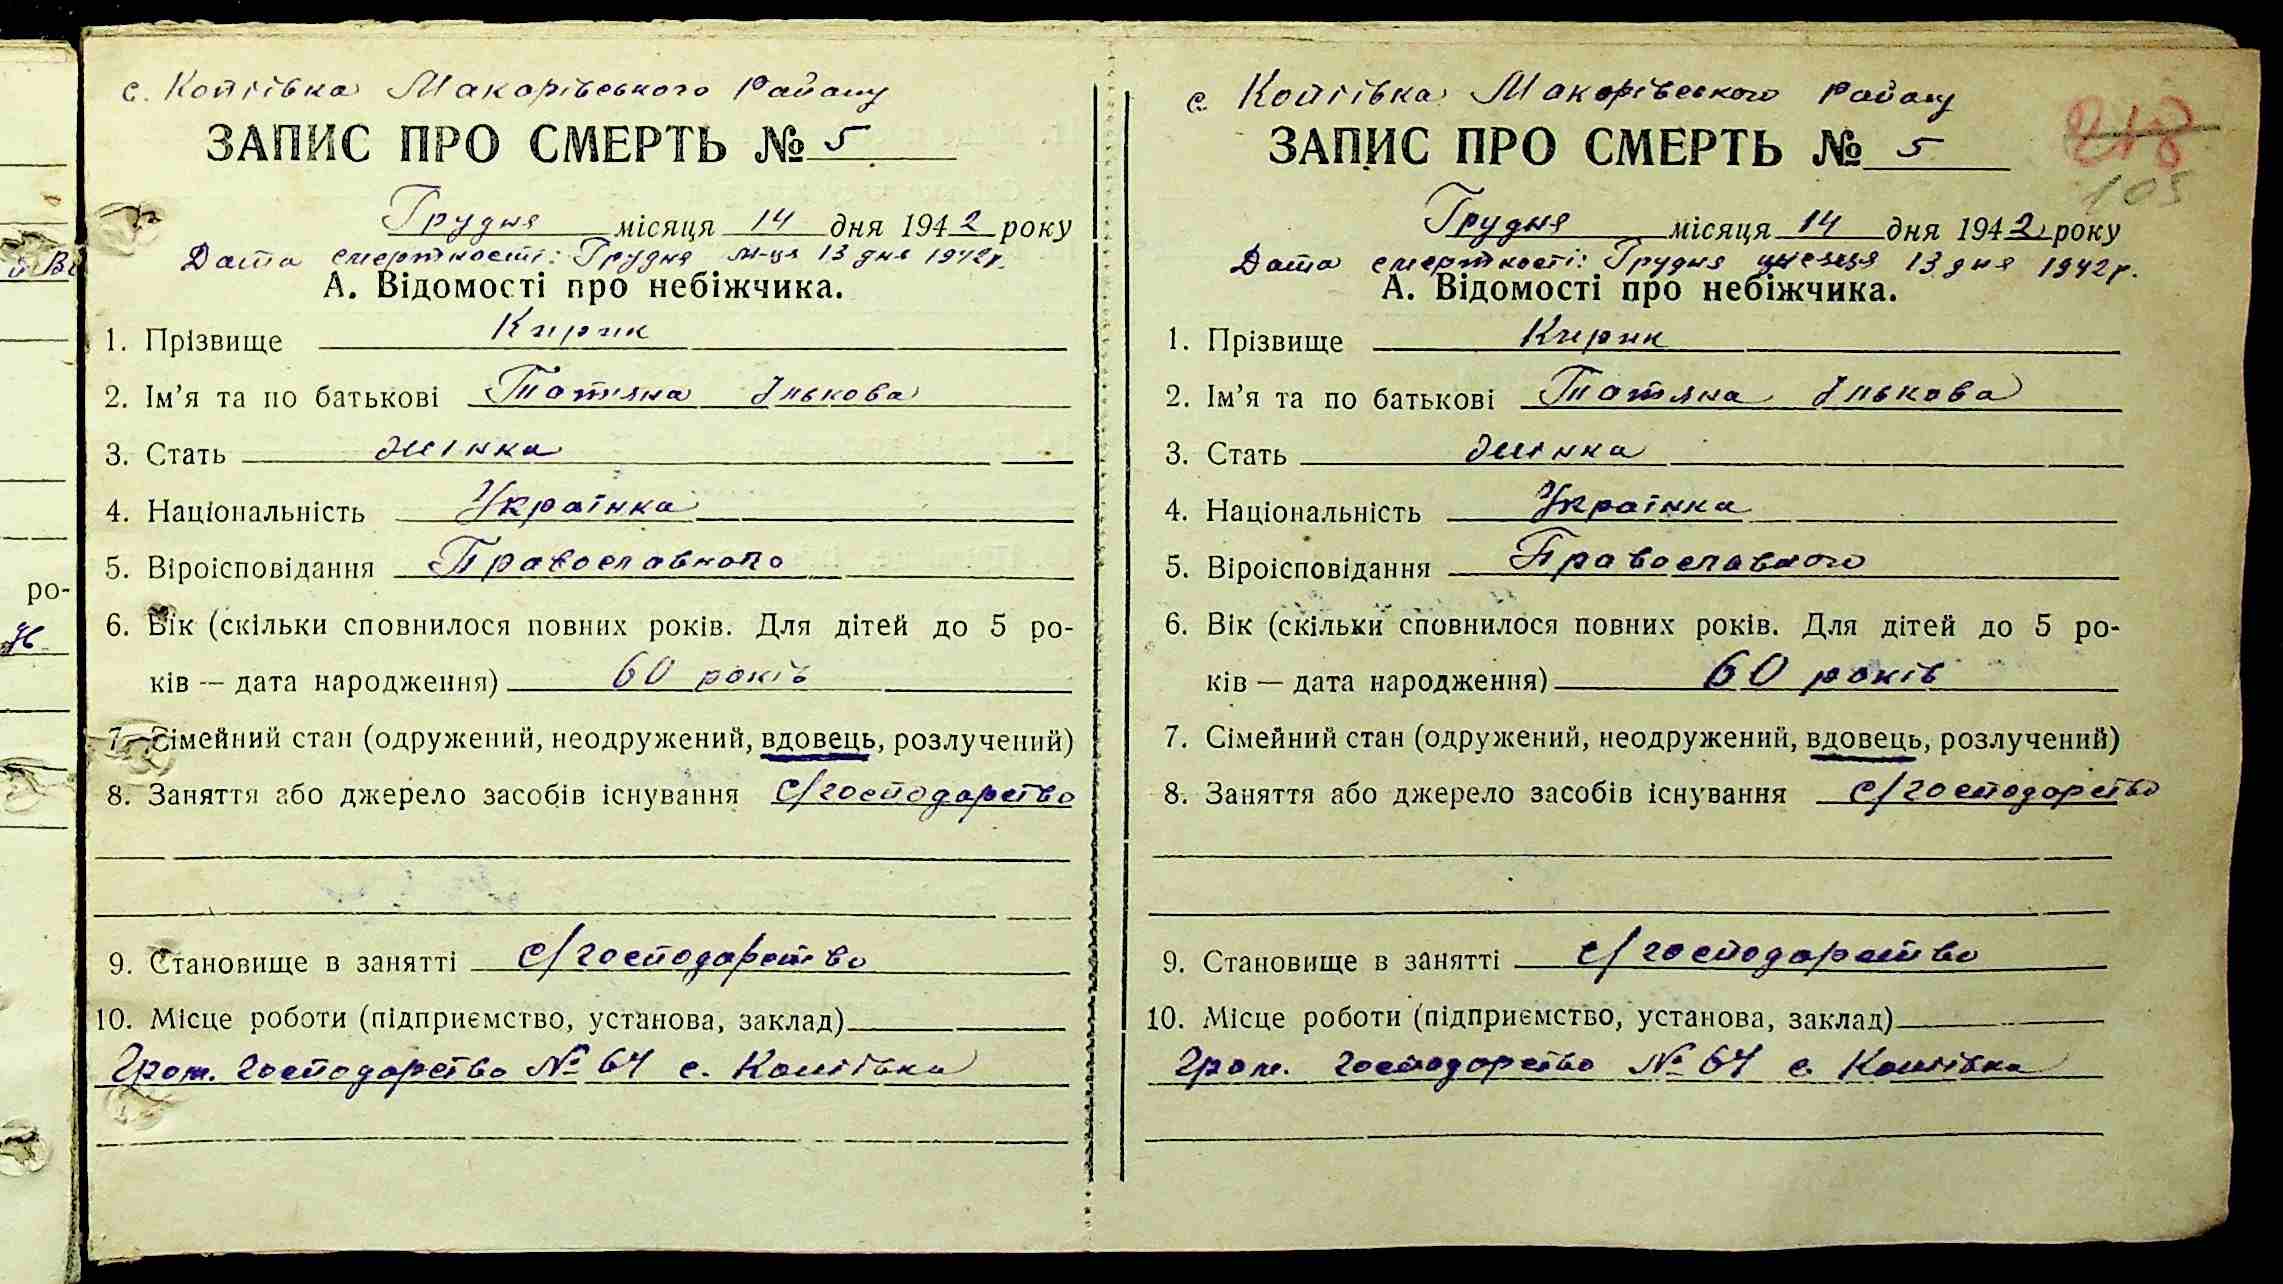 с. Копіївка Макарівського Району
ЗАПИС ПРО СМЕРТЬ № 5
Грудня місяця 14 дня 1942 року
Дата смертності: Грудня м-ця 13 дня 1942 р.
А. Відомості про небіжчика.
1. Прізвище Кирик
2. Ім'я та по батькові Татяна Ількова
3. Стать жінка
4. Національність Українка
5. Віроісповідання Православного
6. Вік (скільки сповнилося повних років. Для дітей до 5 ро-
ків — дата народження) 60 років
7. Сімейний стан (одружений, неодружений, вдовець, розлучений)
8. Заняття або джерело засобів існування с/господарство
9. Становище в занятті с/господарство
10. Місце роботи (підприємство, установа, заклад)
Гром. господарство № 64 с. Копіївка
с. Копіївка Макарівського Району
ЗАПИС ПРО СМЕРТЬ № 5
218
105
Грудня місяця 14 дня 1942 року
Дата смертності: Грудня місяця 13 дня 1942 р.
А. Відомості про небіжчика.
1. Прізвище Кирик
2. Ім'я та по батькові Татяна Ількова
3. Стать жінка
4. Національність Українка
5. Віроісповідання Православного
6. Вік (скільки сповнилося повних років. Для дітей до 5 ро-
ків — дата народження) 60 років
7. Сімейний стан (одружений, неодружений, вдовець, розлучений)
8. Заняття або джерело засобів існування с/господарство
9. Становище в занятті с/господарство
10. Місце роботи (підприємство, установа, заклад)
Гром. господарство № 64 с. Копіївка
ро-